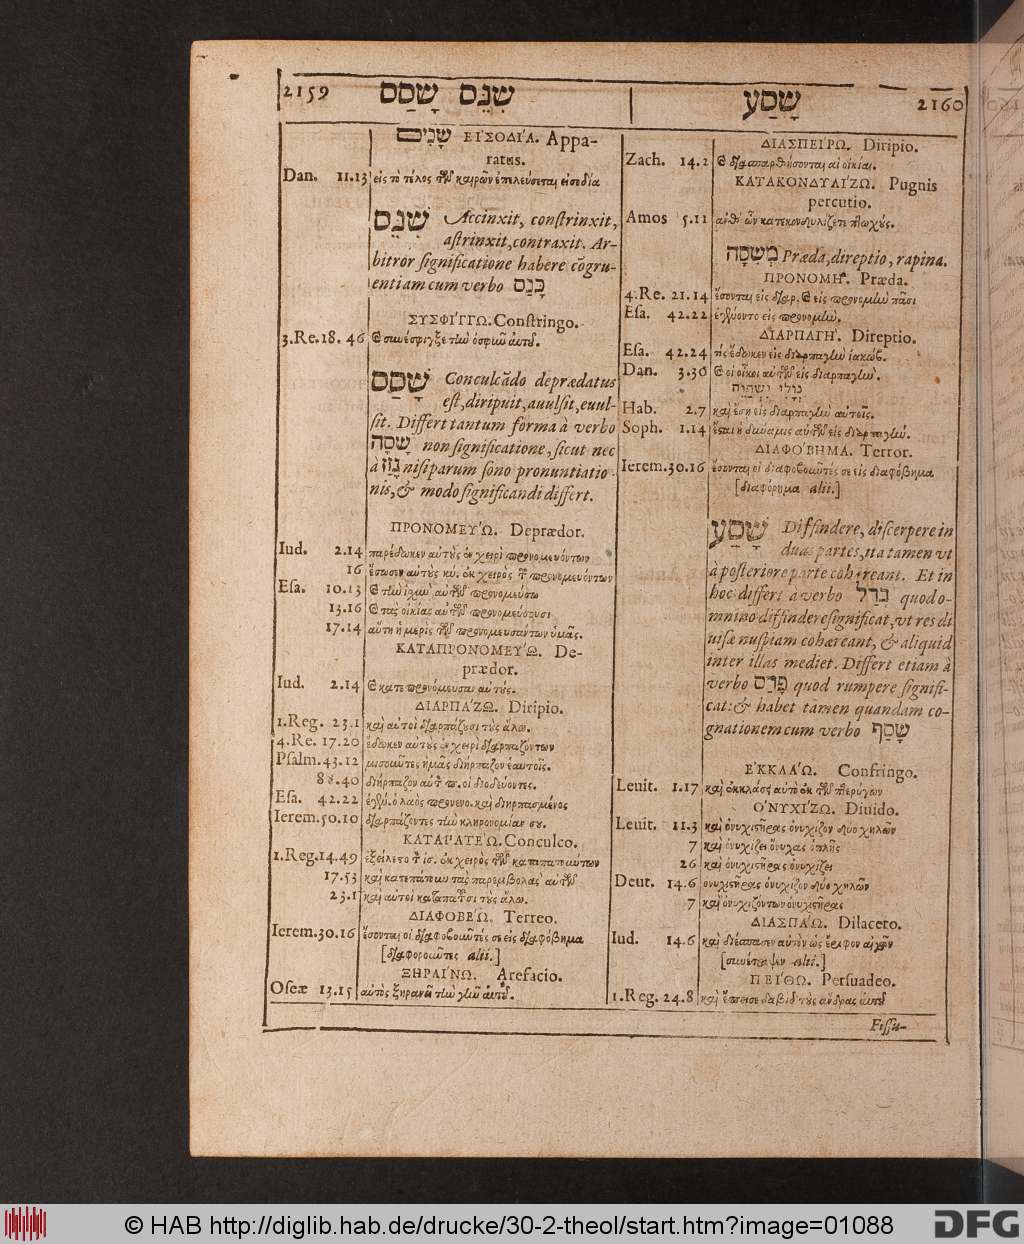 2159 שִׁנֵּס שָׁסַס
שָׁנִים ΕΙΣΟΔΙΑ. Appa-
ratus.
Dan. 11.13 εἰς τὸ τέλος τῶν καιρῶν ἐπελεύσεται εἰσοδία
שִׁנֵּס Accinxit, constrinxit,
astrinxit, contraxit. Ar-
bitror significatione habere cõgru-
entiam cum verbo כָּנַס
ΣΥΣΦΙΓΓΩ. Constringo.
3.Re.18. 46 καὶ συνέσφιγξε τὴν ὀσφὺν αὐτοῦ.
שָׁסַס Conculcãdo deprædatus
est, diripuit, auulsit, euul-
sit. Differt tantum forma à verbo
שָׁסָה non significatione, sicut nec
à גָּזַז nisi parum sono pronuntiatio-
nis, & modo significandi differt.
ΠΡΟΝΟΜΕΥΩ. Deprædor.
Iud. 2.14 παρέδωκεν αὐτοὺς ἐν χειρὶ προνομευόντων
16 ἔσωσεν αὐτοὺς κύ. ἐκ χειρὸς τῶν προνομευόντων
Esa. 10.13 καὶ τὴν ἰσχὺν αὐτῶν προνομεύσω
13.16 καὶ τὰς οἰκίας αὐτῶν προνομεύσουσι
17.14 αὕτη ἡ μερὶς τῶν προνομευσάντων ὑμᾶς.
ΚΑΤΑΠΡΟΝΟΜΕΥΩ. De-
prædor.
Iud. 2.14 καὶ κατεπρονόμευσαν αὐτούς.
ΔΙΑΡΠΑΖΩ. Diripio.
1.Reg. 23.1 καὶ αὐτοὶ διαρπάζουσι τοὺς ἅλω.
4.Re. 17.20 ἔδωκεν αὐτοὺς ἐν χειρὶ διαρπαζόντων
Psalm.43.12 μισοῦντες ἡμᾶς διήρπαζον ἑαυτοῖς.
88.40 διήρπαζον αὐτὸν π. οἱ διοδεύοντες.
Esa. 42.22 ἐγέν. ὁ λαὸς προνενο. καὶ διηρπασμένος
Ierem.50.10 διαρπάζοντες τὴν κληρονομίαν σου.
ΚΑΤΑΠΑΤΕΩ. Conculco.
1.Reg.14.49 ἐξείλετο τὸν ἰσ. ἐκ χειρὸς τῶν καταπατούντων
17.53 καὶ κατεπάτουν τὰς παρεμβολὰς αὐτῶν
23.1 καὶ αὐτοὶ καταπατοῦσι τοὺς ἅλω.
ΔΙΑΦΟΒΕΩ. Terreo.
Ierem.30.16 ἔσονται οἱ διαφοβοῦντές σε εἰς διαφόβημα
[διαφοροῦντες alii.]
ΞΗΡΑΙΝΩ. Arefacio.
Oseæ 13.15 αὐτὸς ξηρανεῖ τὴν γῆν αὐτοῦ.
שָׁסַע 2160
ΔΙΑΣΠΕΙΡΩ. Diripio.
Zach. 14.2 καὶ διαπαρθήσονται αἱ οἰκίαι.
ΚΑΤΑΚΟΝΔΥΛΙΖΩ. Pugnis
percutio.
Amos 5.11 ἀνθ' ὧν κατεκονδυλίζετε πτωχούς.
מְשִׁסָּה Præda, direptio, rapina.
ΠΡΟΝΟΜΗ. Præda.
4.Re. 21.14 ἔσονται εἰς διαρ. καὶ εἰς προνομὴν πᾶσι
Esa. 42.22 ἐγένοντο εἰς προνομήν.
ΔΙΑΡΠΑΓΗ. Direptio.
Esa. 42.24 τίς ἔδωκεν εἰς διαρπαγὴν ἰακώβ.
Dan. 3.30 καὶ οἱ οἶκοι αὐτῶν εἰς διαρπαγήν.
Hab. 2.7 καὶ ἔσῃ εἰς διαρπαγὴν αὐτοῖς.
Soph. 1.14 ἔσται ἡ δύναμις αὐτῶν εἰς διαρπαγήν.
ΔΙΑΦΟΒΗΜΑ. Terror.
Ierem.30.16 ἔσονται οἱ διαφοβοῦντές σε εἰς διαφόβημα
[διαφόρημα alii.]
שָׁסַע Diffindere, discerpere in
duas partes, ita tamen vt
à posteriore parte cohæreant. Et in
hoc differt à verbo בָּדַל quod o-
mnino diffindere significat, vt res di
uisæ nuspiam cohæreant, & aliquid
inter illas mediet. Differt etiam à
verbo פָּרַס quod rumpere signifi-
cat: & habet tamen quandam co-
gnationem cum verbo שָׁסַף
ΕΚΚΛΑΩ. Confringo.
Leuit. 1.17 καὶ ἐκκλάσει αὐτὸ ἐκ τῶν πτερύγων
ΟΝΥΧΙΖΩ. Diuido.
Leuit. 11.3 καὶ ὀνυχιστῆρας ὀνυχίζον δύο χηλῶν
7 καὶ ὀνυχίζει ὄνυχας ὁπλῆς
26 καὶ ὀνυχιστῆρας ὀνυχίζει
Deut. 14.6 ὀνυχιστῆρας ὀνυχίζον δύο χηλῶν
7 καὶ ὀνυχιζόντων ὀνυχιστῆρας
ΔΙΑΣΠΑΩ. Dilacero.
Iud. 14.6 καὶ διέσπασεν αὐτὸν ὡς ἔριφον αἰγῶν
[συνέτριψεν alii.]
ΠΕΙΘΩ. Persuadeo.
1.Reg. 24.8 καὶ ἔπεισε δαβὶδ τοὺς ἄνδρας αὐτοῦ
Fissu-
© HAB http://diglib.hab.de/drucke/30-2-theol/start.htm?image=01088
DFG